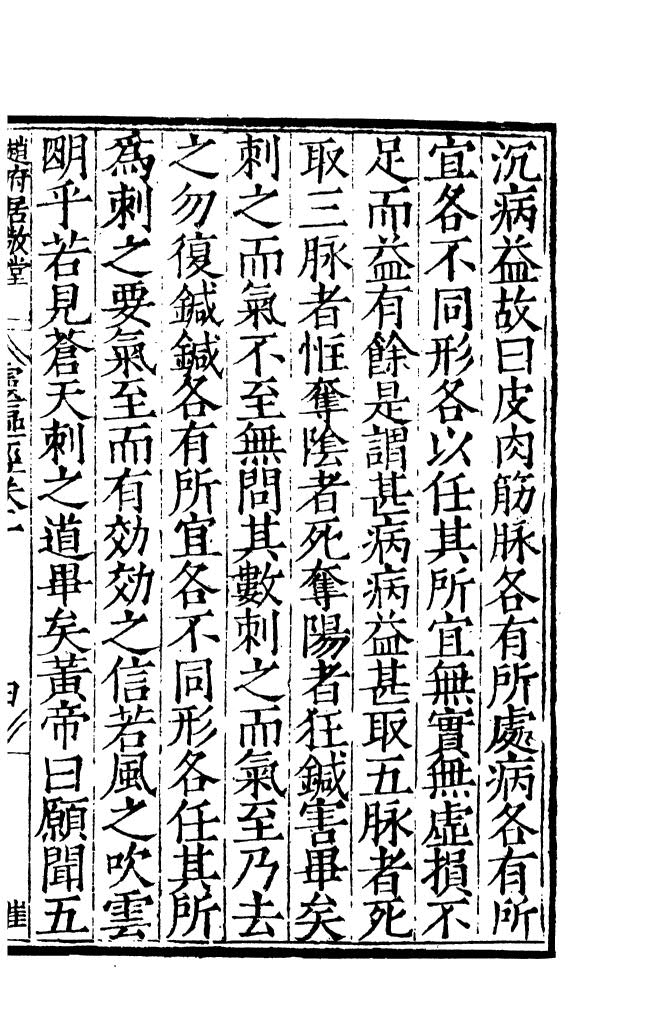 沉病益故曰皮肉筋脉各有所處病各有所
宜各不同形各以任其所宜無實無虛損不
足而益有餘是謂甚病病益甚取五脉者死
取三脉者恇奪陰者死奪陽者狂鍼害畢矣
刺之而氣不至無問其數刺之而氣至乃去
之勿復鍼鍼各有所宜各不同形各任其所
爲刺之要氣至而有効効之信若風之吹雲
明乎若見蒼天刺之道畢矣黃帝曰願聞五
趙府居敬堂 靈樞經卷一